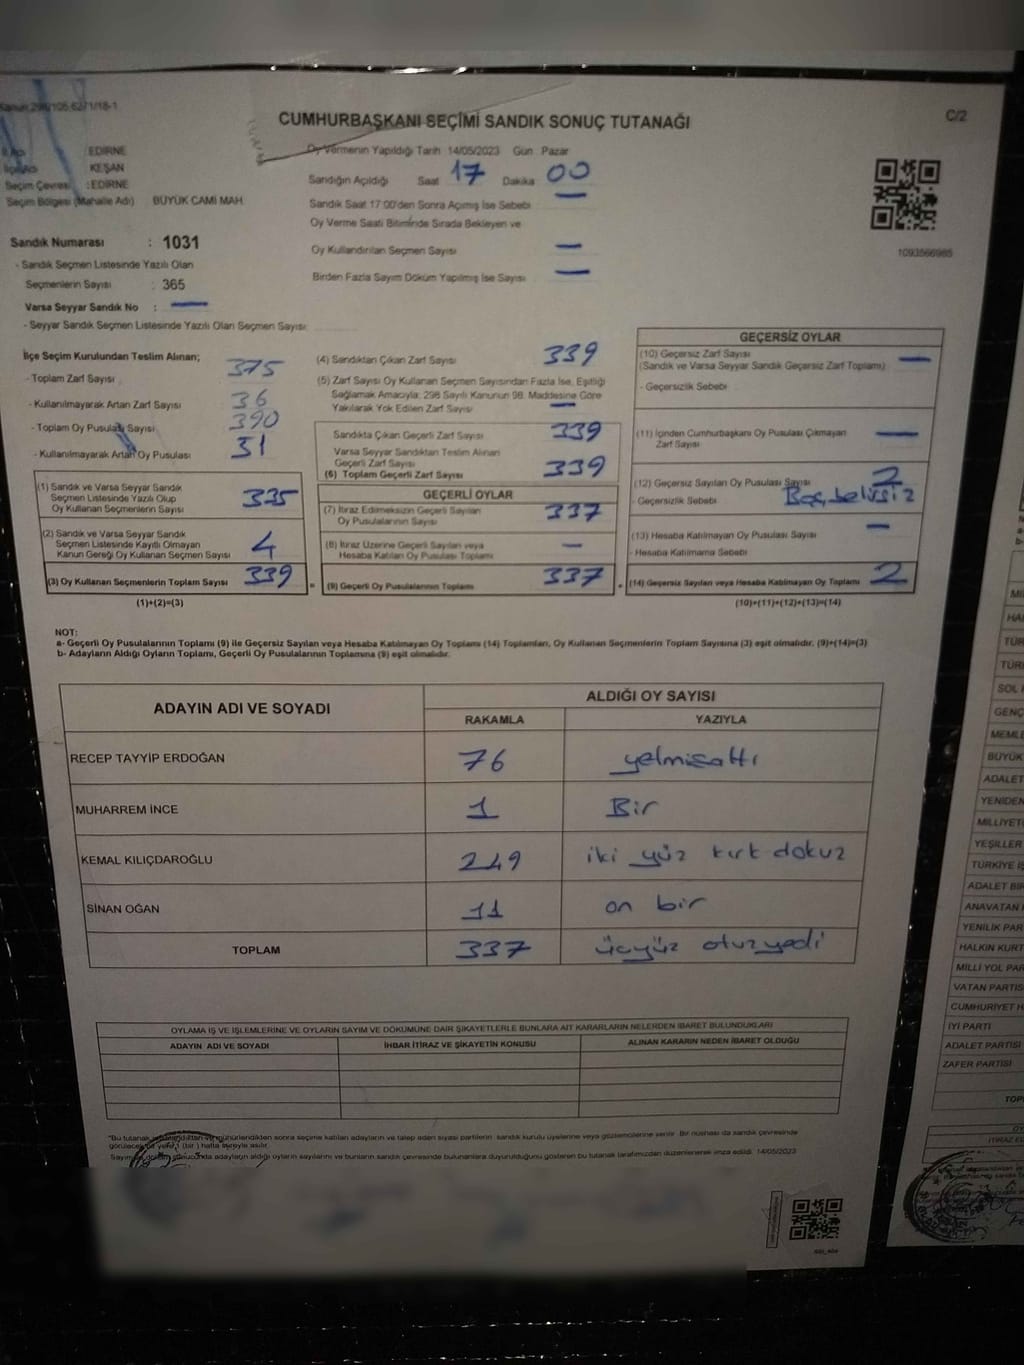 Kanun:298/105 6271/18-1
CUMHURBAŞKANI SEÇİMİ SANDIK SONUÇ TUTANAĞI
C/2
İl Adı EDİRNE
İlçe Adı KEŞAN
Seçim Çevresi : EDİRNE
Seçim Bölgesi (Mahalle Adı) BÜYÜK CAMİ MAH.
Oy Vermenin Yapıldığı Tarih 14/05/2023 Gün Pazar
Sandığın Açıldığı Saat 17 Dakika 00
Sandık Saat 17:00'den Sonra Açımış İse Sebebi —
Oy Verme Saati Bitiminde Sırada Bekleyen ve
Oy Kullandırılan Seçmen Sayısı —
Birden Fazla Sayım Döküm Yapılmış İse Sayısı —
1093566985
Sandık Numarası : 1031
- Sandık Seçmen Listesinde Yazılı Olan
Seçmenlerin Sayısı : 365
Varsa Seyyar Sandık No : —
- Seyyar Sandık Seçmen Listesinde Yazılı Olan Seçmen Sayısı:
İlçe Seçim Kurulundan Teslim Alınan;
- Toplam Zarf Sayısı 375
- Kullanılmayarak Artan Zarf Sayısı 36
- Toplam Oy Pusulası Sayısı 390
- Kullanılmayarak Artan Oy Pusulası 51
(1) Sandık ve Varsa Seyyar Sandık
Seçmen Listesinde Yazılı Olup
Oy Kullanan Seçmenlerin Sayısı 335
(2) Sandık ve Varsa Seyyar Sandık
Seçmen Listesinde Kayıtlı Olmayan
Kanun Gereği Oy Kullanan Seçmen Sayısı 4
(3) Oy Kullanan Seçmenlerin Toplam Sayısı 339
(1)+(2)=(3)
(4) Sandıktan Çıkan Zarf Sayısı 339
(5) Zarf Sayısı Oy Kullanan Seçmen Sayısından Fazla İse, Eşitliği
Sağlamak Amacıyla; 298 Sayılı Kanunun 98. Maddesine Göre
Yakılarak Yok Edilen Zarf Sayısı —
Sandıkta Çıkan Geçerli Zarf Sayısı 339
Varsa Seyyar Sandıktan Teslim Alınan
Geçerli Zarf Sayısı
(6) Toplam Geçerli Zarf Sayısı 339
GEÇERLİ OYLAR
(7) İtiraz Edilmeksizin Geçerli Sayılan
Oy Pusulalarının Sayısı 337
(8) İtiraz Üzerine Geçerli Sayılan veya
Hesaba Katılan Oy Pusulası Toplamı —
= (9) Geçerli Oy Pusulalarının Toplamı 337 +
GEÇERSİZ OYLAR
(10) Geçersiz Zarf Sayısı —
(Sandık ve Varsa Seyyar Sandık Geçersiz Zarf Toplamı)
- Geçersizlik Sebebi
(11) İçinden Cumhurbaşkanı Oy Pusulası Çıkmayan
Zarf Sayısı —
(12) Geçersiz Sayılan Oy Pusulası Sayısı 2
- Geçersizlik Sebebi
(13) Hesaba Katılmayan Oy Pusulası Sayısı —
- Hesaba Katılmama Sebebi
(14) Geçersiz Sayılan veya Hesaba Katılmayan Oy Toplamı 2
(10)+(11)+(12)+(13)=(14)
NOT:
a- Geçerli Oy Pusulalarının Toplamı (9) ile Geçersiz Sayılan veya Hesaba Katılmayan Oy Toplamı (14) Toplamları, Oy Kullanan Seçmenlerin Toplam Sayısına (3) eşit olmalıdır. (9)+(14)=(3)
b- Adayların Aldığı Oyların Toplamı, Geçerli Oy Pusulalarının Toplamına (9) eşit olmalıdır.
ADAYIN ADI VE SOYADI
ALDIĞI OY SAYISI
RAKAMLA YAZIYLA
RECEP TAYYİP ERDOĞAN 76 yetmişaltı
MUHARREM İNCE 1 Bir
KEMAL KILIÇDAROĞLU 249 iki yüz kırk dokuz
SİNAN OĞAN 11 on bir
TOPLAM 337 üçyüz otuzyedi
OYLAMA İŞ VE İŞLEMLERİNE VE OYLARIN SAYIM VE DÖKÜMÜNE DAİR ŞİKAYETLERLE BUNLARA AİT KARARLARIN NELERDEN İBARET BULUNDUKLARI
ADAYIN ADI VE SOYADI İHBAR İTİRAZ VE ŞİKAYETİN KONUSU ALINAN KARARIN NEDEN İBARET OLDUĞU
SOL
GENÇ
BÜYÜK
ADALET
YENİDEN
YEŞİLLER
TÜRKİYE İŞ
ADALET BİR
YENİLİK PAR
HALKIN KURT
MİLLİ YOL PAR
VATAN PARTİS
CUMHURİYET H
İYİ PARTİ
ADALET PARTİSİ
ZAFER PARTİSİ